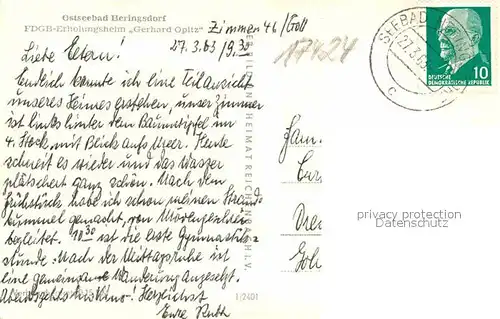 Ostseebad Heringsdorf
FDGB-Erholungsheim „Gerhard Opitz"
Zimmer 46
27.3.63 / 9,30
17424
Liebe Eltern!
Endlich konnte ich eine Teilansicht
unseres Heimes erstehen, unser Zimmer
ist links hinter dem Baumwipfel im
4. Stock, mit Blick aufs Meer. Heute
schneit es wieder und das Wasser
plätschert ganz schön. Nach dem
Frühstück habe ich schon meinen Strand-
bummel gemacht, von Möwengeschrei
begleitet. 10.30 ist die erste Gymnastik-
stunde. Nach der Mittagsruhe ist
eine gemeinsame Wanderung angesetzt.
Abends gehts ins Kino! Herzlichst
Eure Ruth
BILD UND HEIMAT REICHENBACH I. V.
I/2401
SEEBAD
27.3.63
c
DEUTSCHE
DEMOKRATISCHE REPUBLIK
10
Fam.
privacy protection
www.oldthing.de